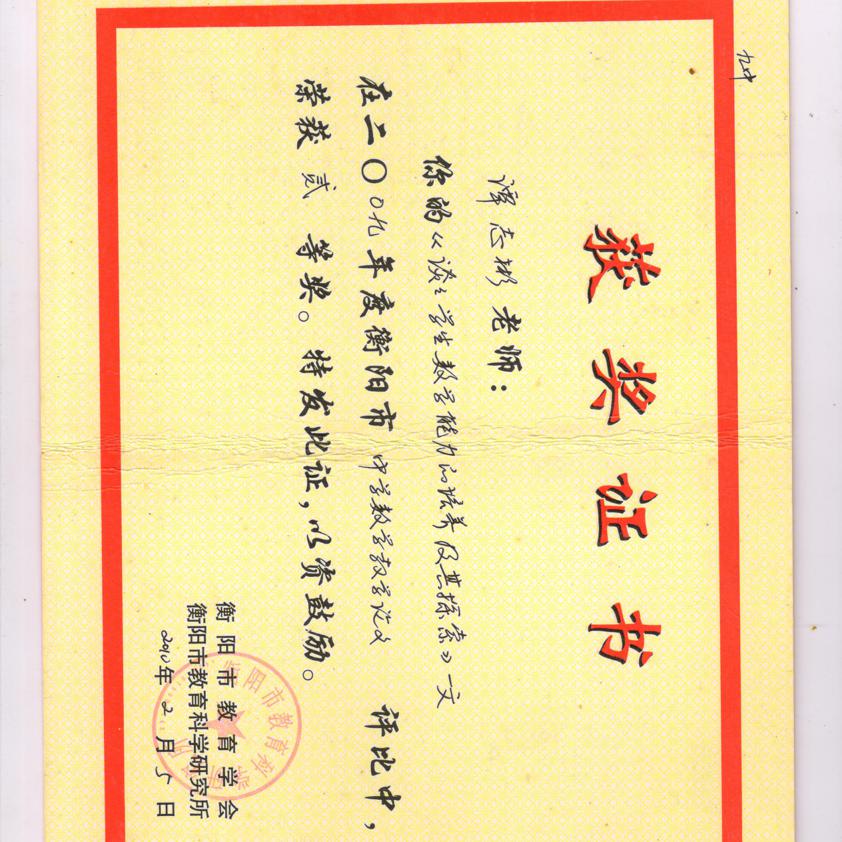 九中
获奖证书
谭志彬老师：
你的《谈谈学生数学能力的培养及其探索》一文
在二〇〇九年度衡阳市中学数学教学论文评比中，
荣获贰等奖。特发此证，以资鼓励。
衡阳市教育学会
衡阳市教育科学研究所
2010年2月5日
衡阳市教育科学